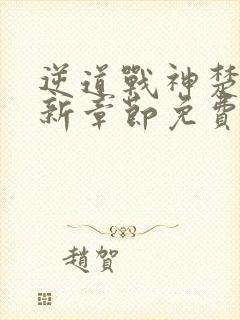 逆道戰神楚
新章節免費
趙賀